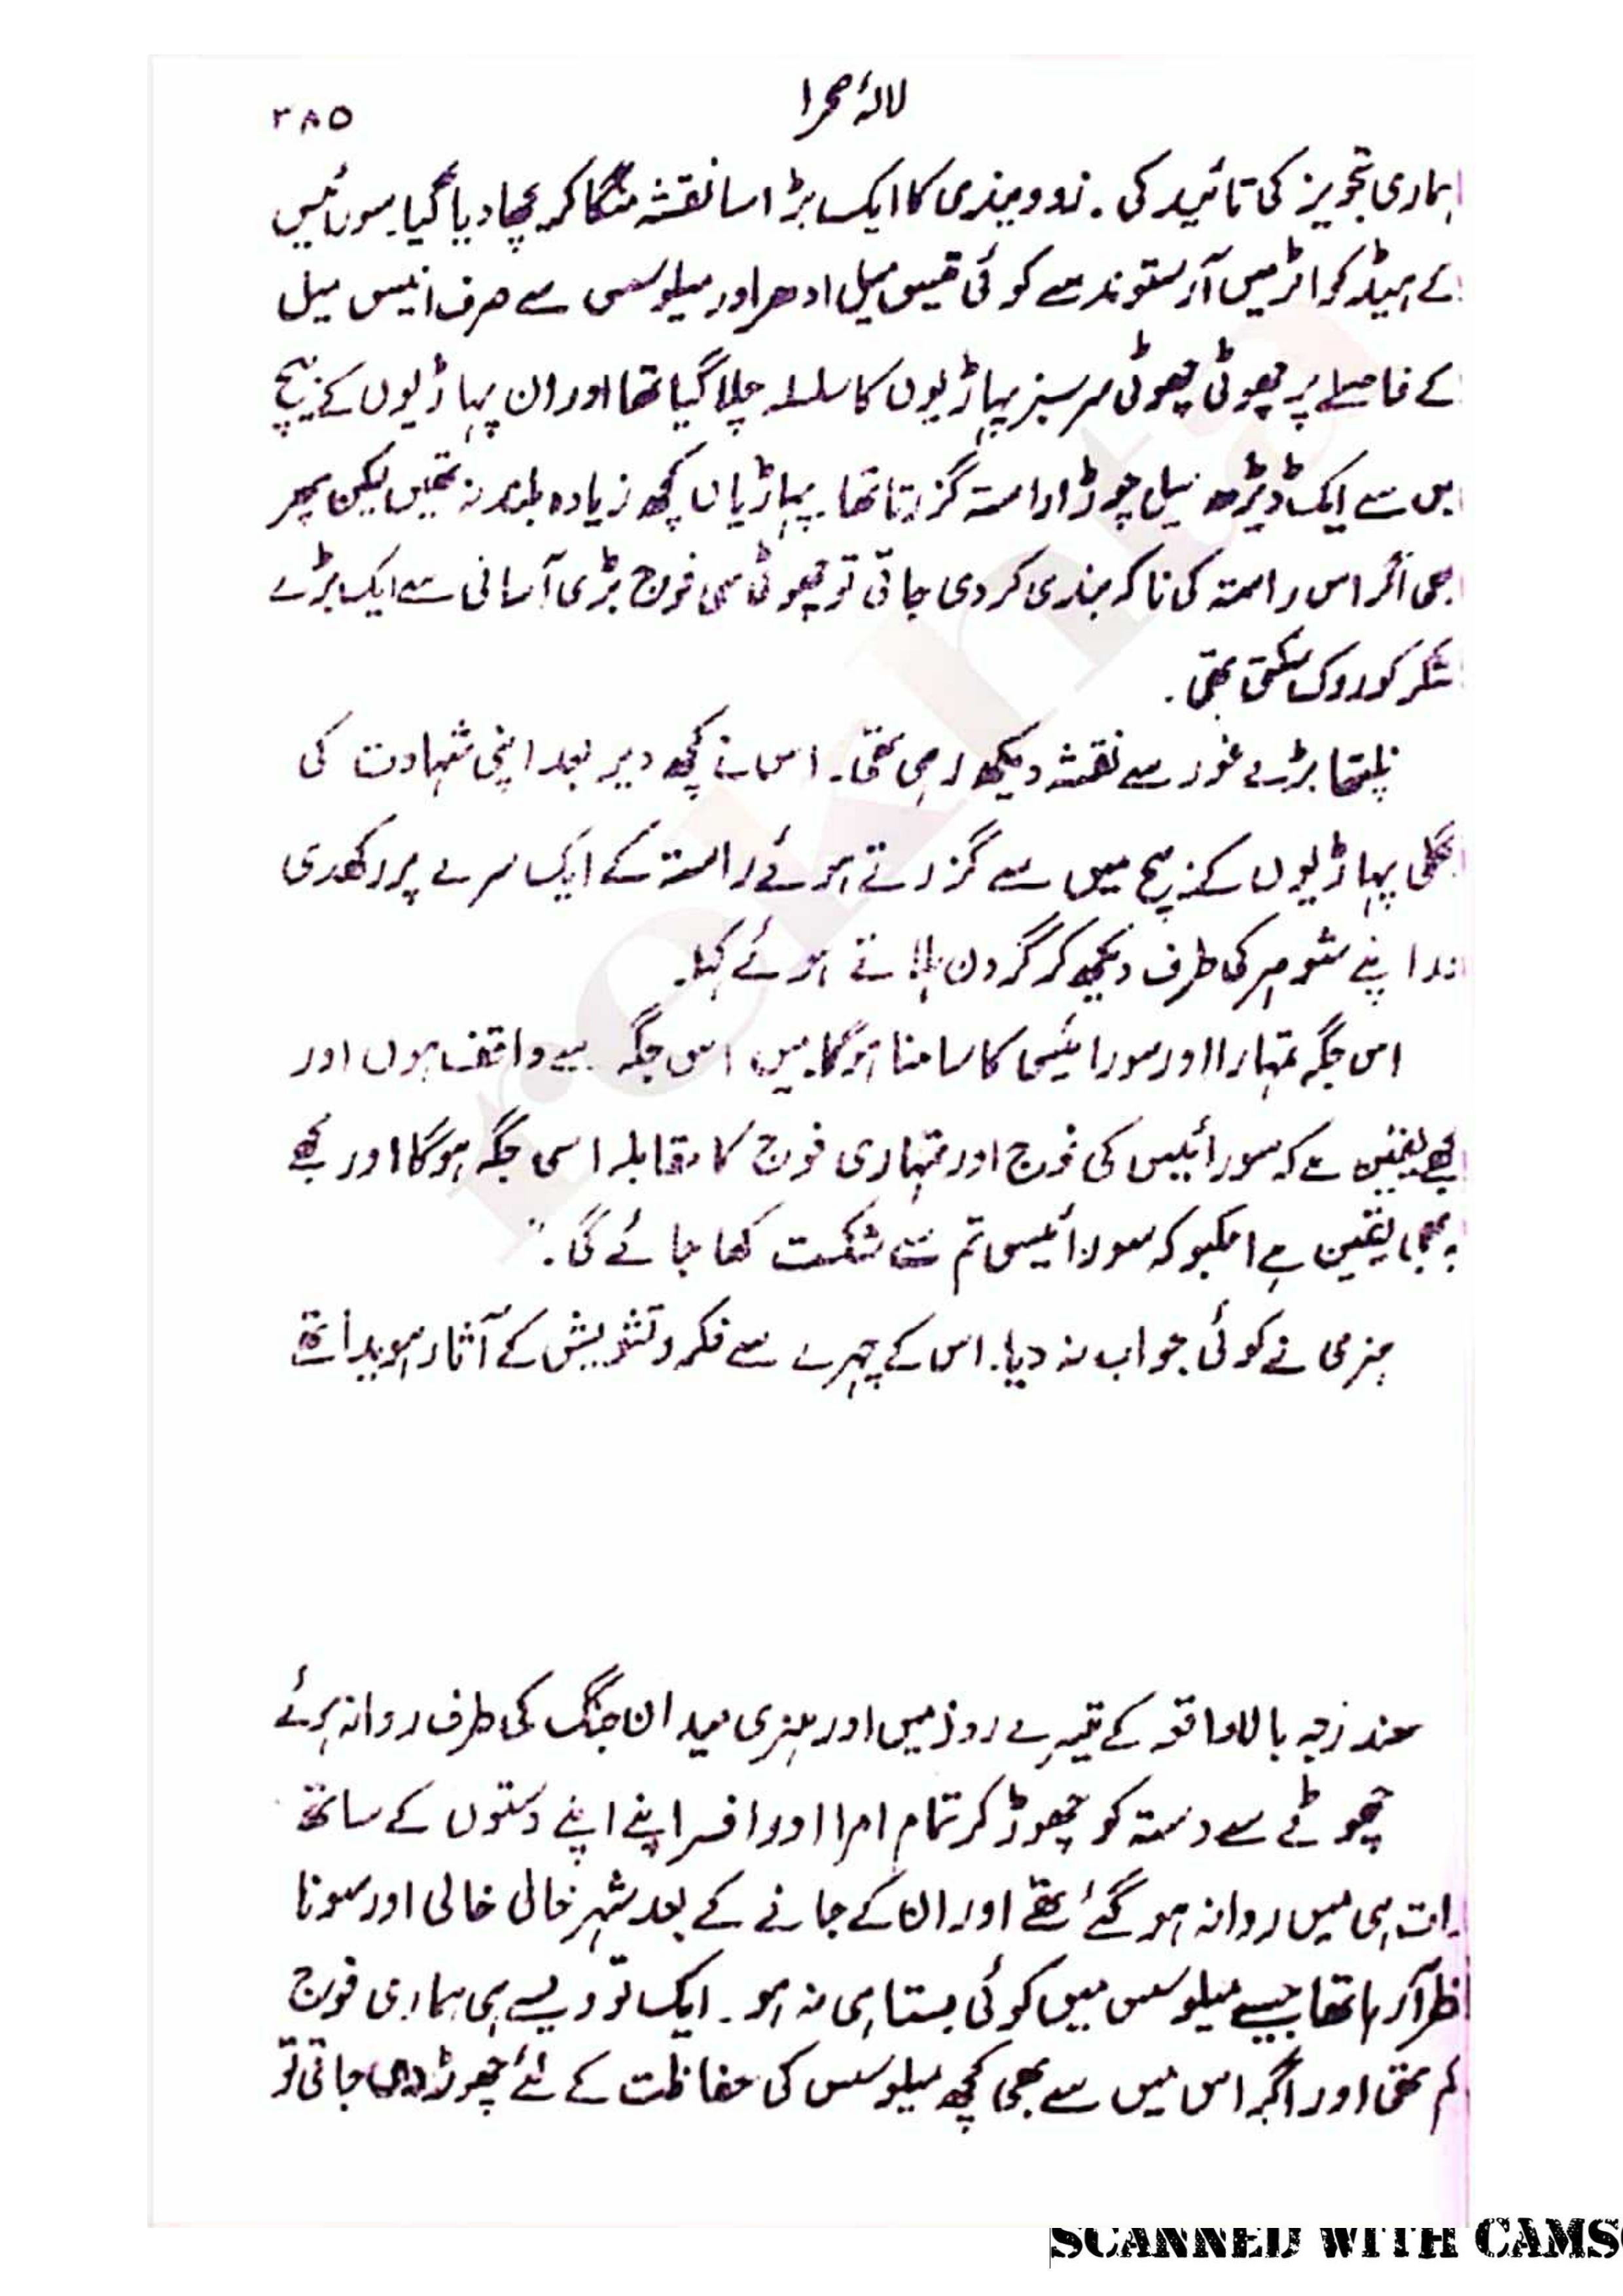 لالۂ صحرا
۳۸۵
ہماری تجویز کی تائید کی۔ زوووینڈی کا ایک بڑا سا نقشہ منگا کر بچھا دیا گیا۔ سورائیس
کے ہیڈ کوارٹر میں آرستوند سے کوئی تیس میل ادھر اور میلوسس سے صرف انیس میل
کے فاصلے پر چھوٹی چھوٹی سرسبز پہاڑیوں کا سلسلہ چلا گیا تھا اور ان پہاڑیوں کے بیچ
میں سے ایک ڈیڑھ میل چوڑا راستہ گزرتا تھا۔ پہاڑیاں کچھ زیادہ بلند نہ تھیں لیکن پھر
بھی اگر اس راستہ کی ناکہ بندی کر دی جاتی تو چھوٹی سی فوج بڑی آسانی سے ایک بڑے
لشکر کو روک سکتی تھی۔
نلیتھا بڑے غور سے نقشہ دیکھ رہی تھی۔ اس نے کچھ دیر بعد اپنی شہادت کی
انگلی پہاڑیوں کے بیچ میں سے گزرتے ہوئے راستہ کے ایک سرے پر رکھدی
اور اپنے شوہر کی طرف دیکھ کر گردن ہلاتے ہوئے کہا۔
اس جگہ تمہارا اور سورائیس کا سامنا ہوگا۔ میں اس جگہ سے واقف ہوں اور
مجھے یقین ہے کہ سورائیس کی فوج اور تمہاری فوج کا مقابلہ اسی جگہ ہوگا اور مجھے
یہ بھی یقین ہے انکبو کہ سورائیس تم سے شکست کھا جائے گی۔"
ہنری نے کوئی جواب نہ دیا۔ اس کے چہرے سے فکر و تشویش کے آثار ہویدا تھے
مندرجہ بالا واقعہ کے تیسرے روز میں اور ہنری میدان جنگ کی طرف روانہ ہوئے
چھوٹے سے دستہ کو چھوڑ کر تمام امرا اور افسر اپنے اپنے دستوں کے ساتھ
رات ہی میں روانہ ہو گئے تھے اور ان کے جانے کے بعد شہر خالی خالی اور سونا
نظر آ رہا تھا جیسے میلوسس میں کوئی بستا ہی نہ ہو۔ ایک تو ویسے ہی ہماری فوج
کم تھی اور اگر اس میں سے بھی کچھ میلوسس کی حفاظت کے لئے چھوڑ دی جاتی تو
SCANNED WITH CAMS